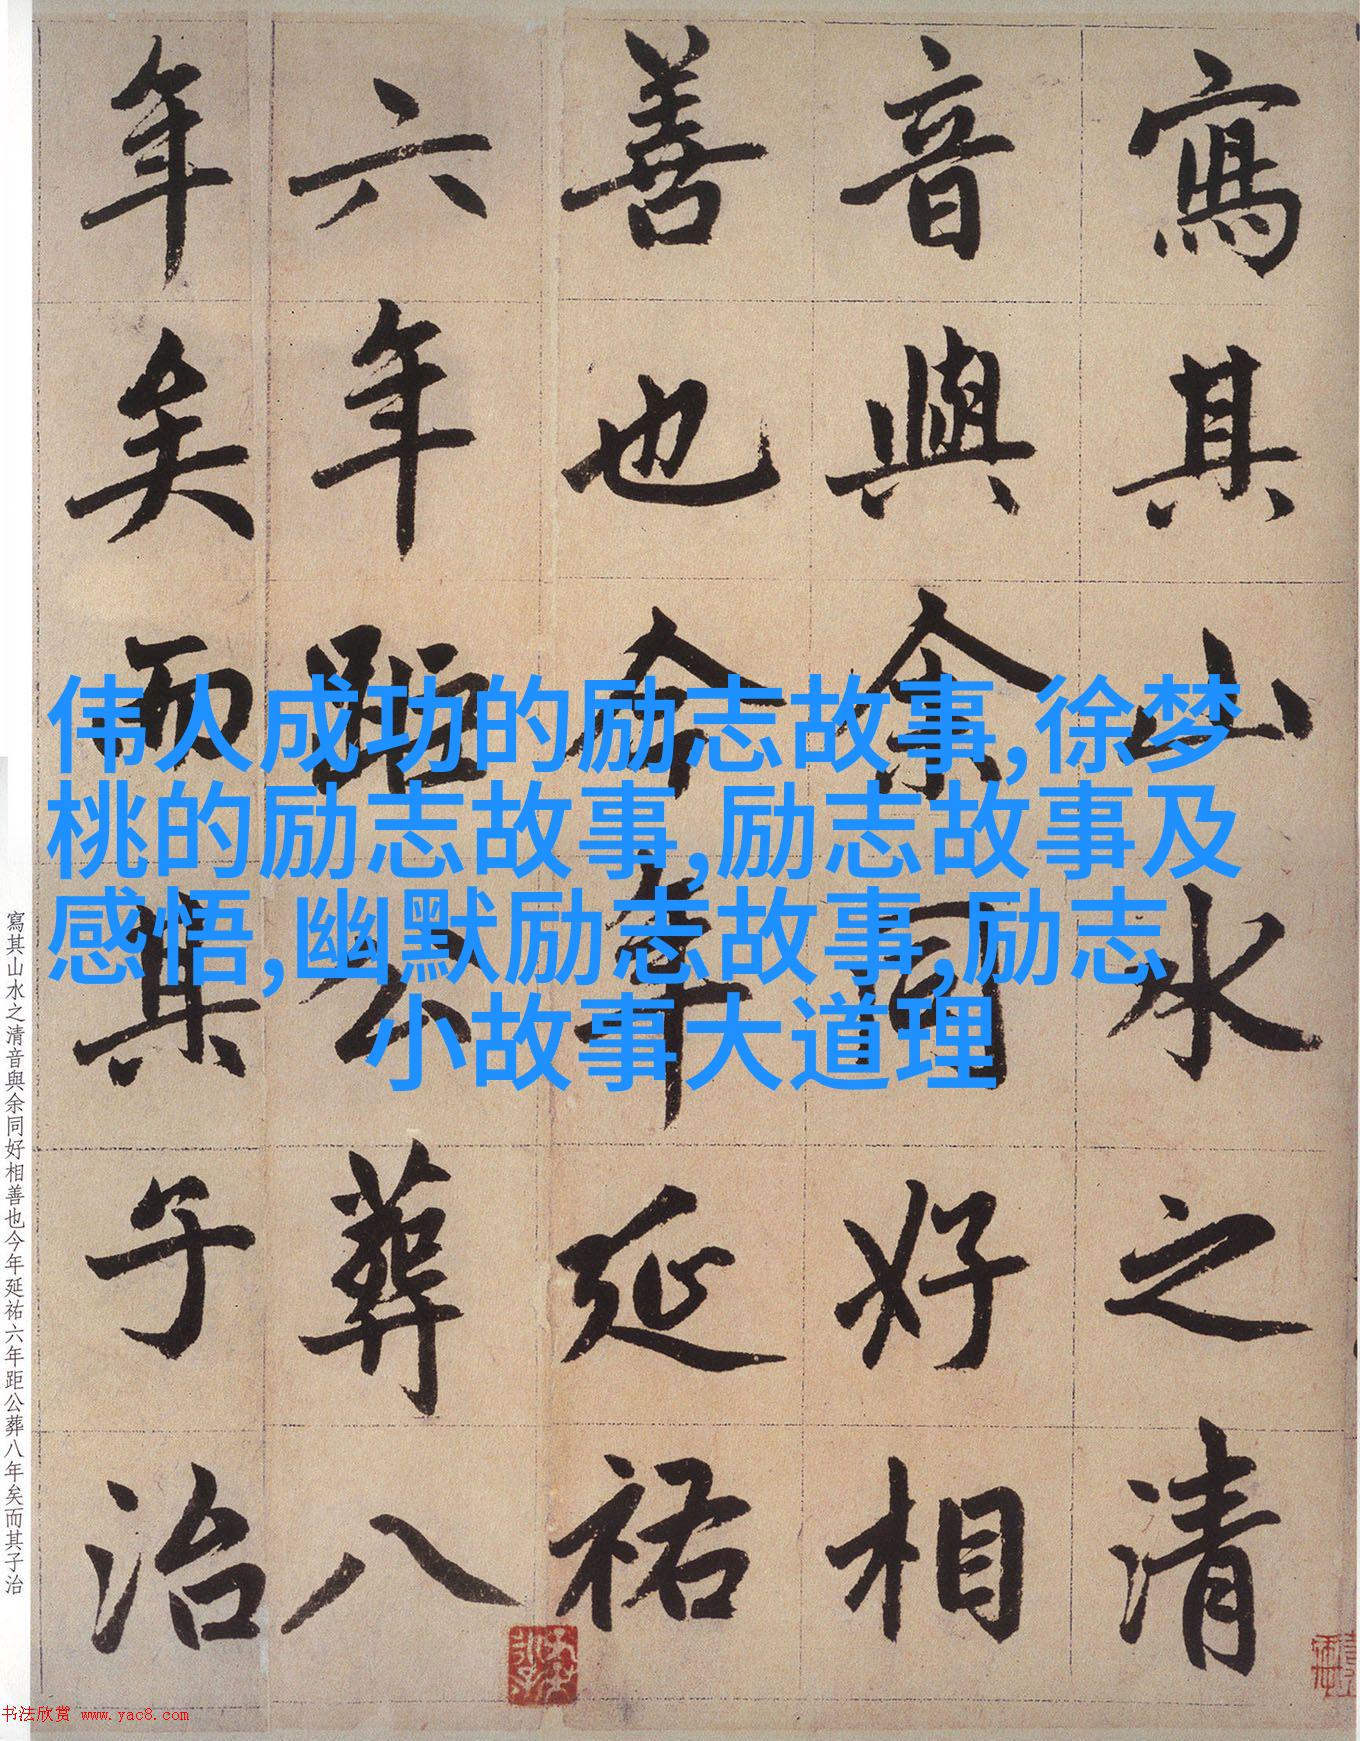 寫其山水之清
音與余同好相
善也今年延祐
六年距公葬八
年矣而其子治
伟人成功的励志故事,徐梦
桃的励志故事,励志故事及
感悟,幽默励志故事,励志
小故事大道理
寫其山水之清音與余同好相善也今年延祐六年距公葬八年矣而其子治
书法欣赏 www.yac8.com